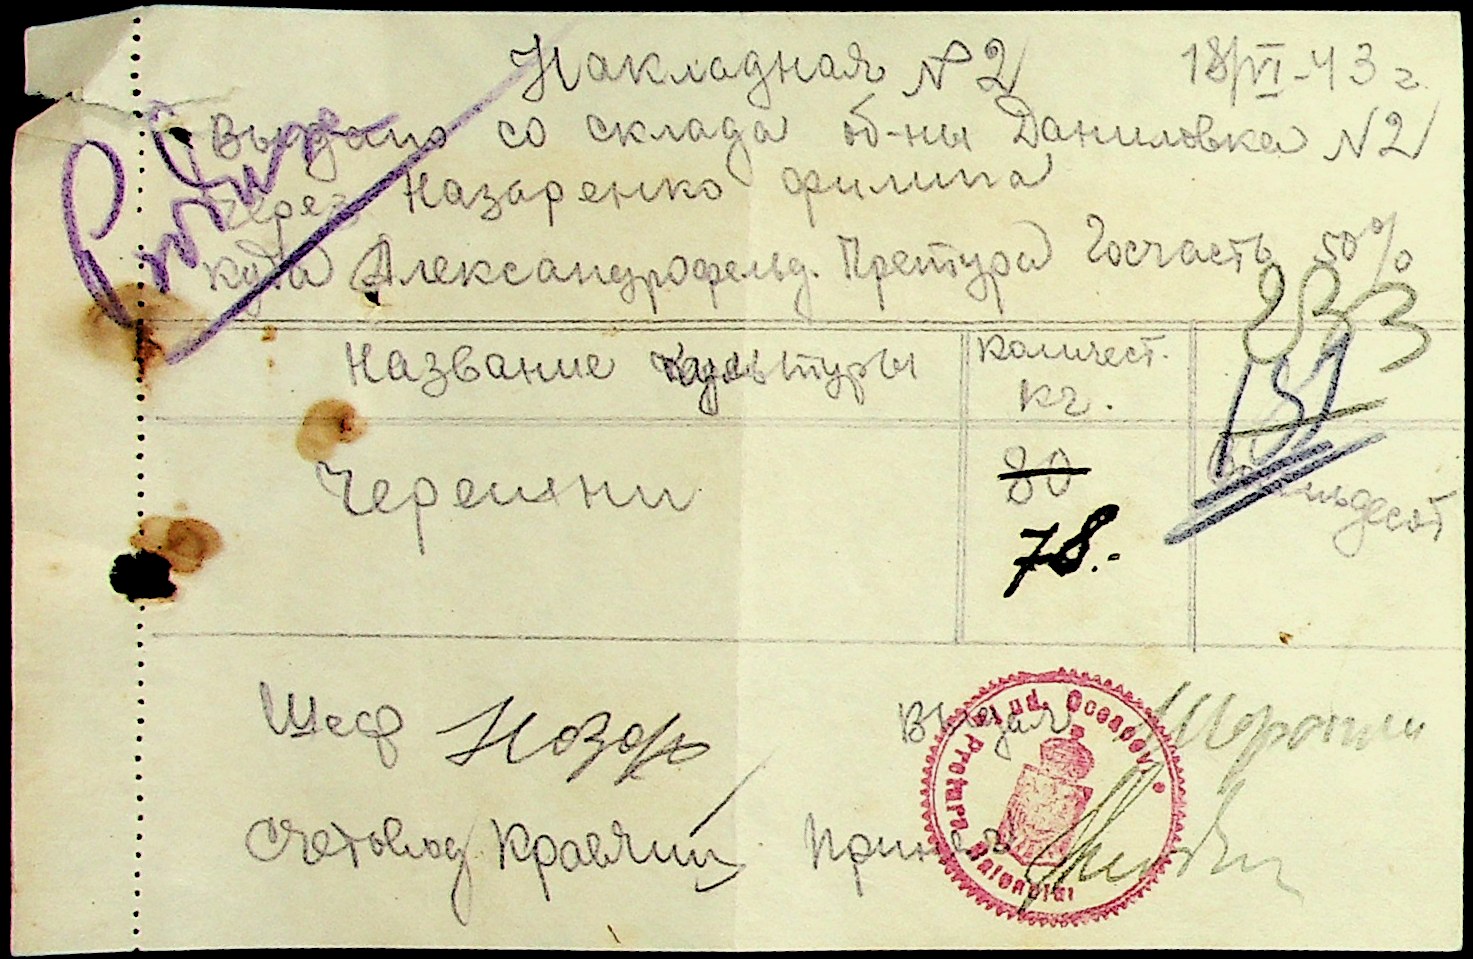 Накладная №2 18/VI-43 г.
Выдано со склада об-ны Даниловка №2
через Назаренко Филипа
куда Александрофельд. Претура Госчасть 50%
233
Название культуры Количест.
кг.
Черешни 80
78.-
Шеф Выдал
Счетовод Кравчий Принял
Jud. Oceacov
Pretura